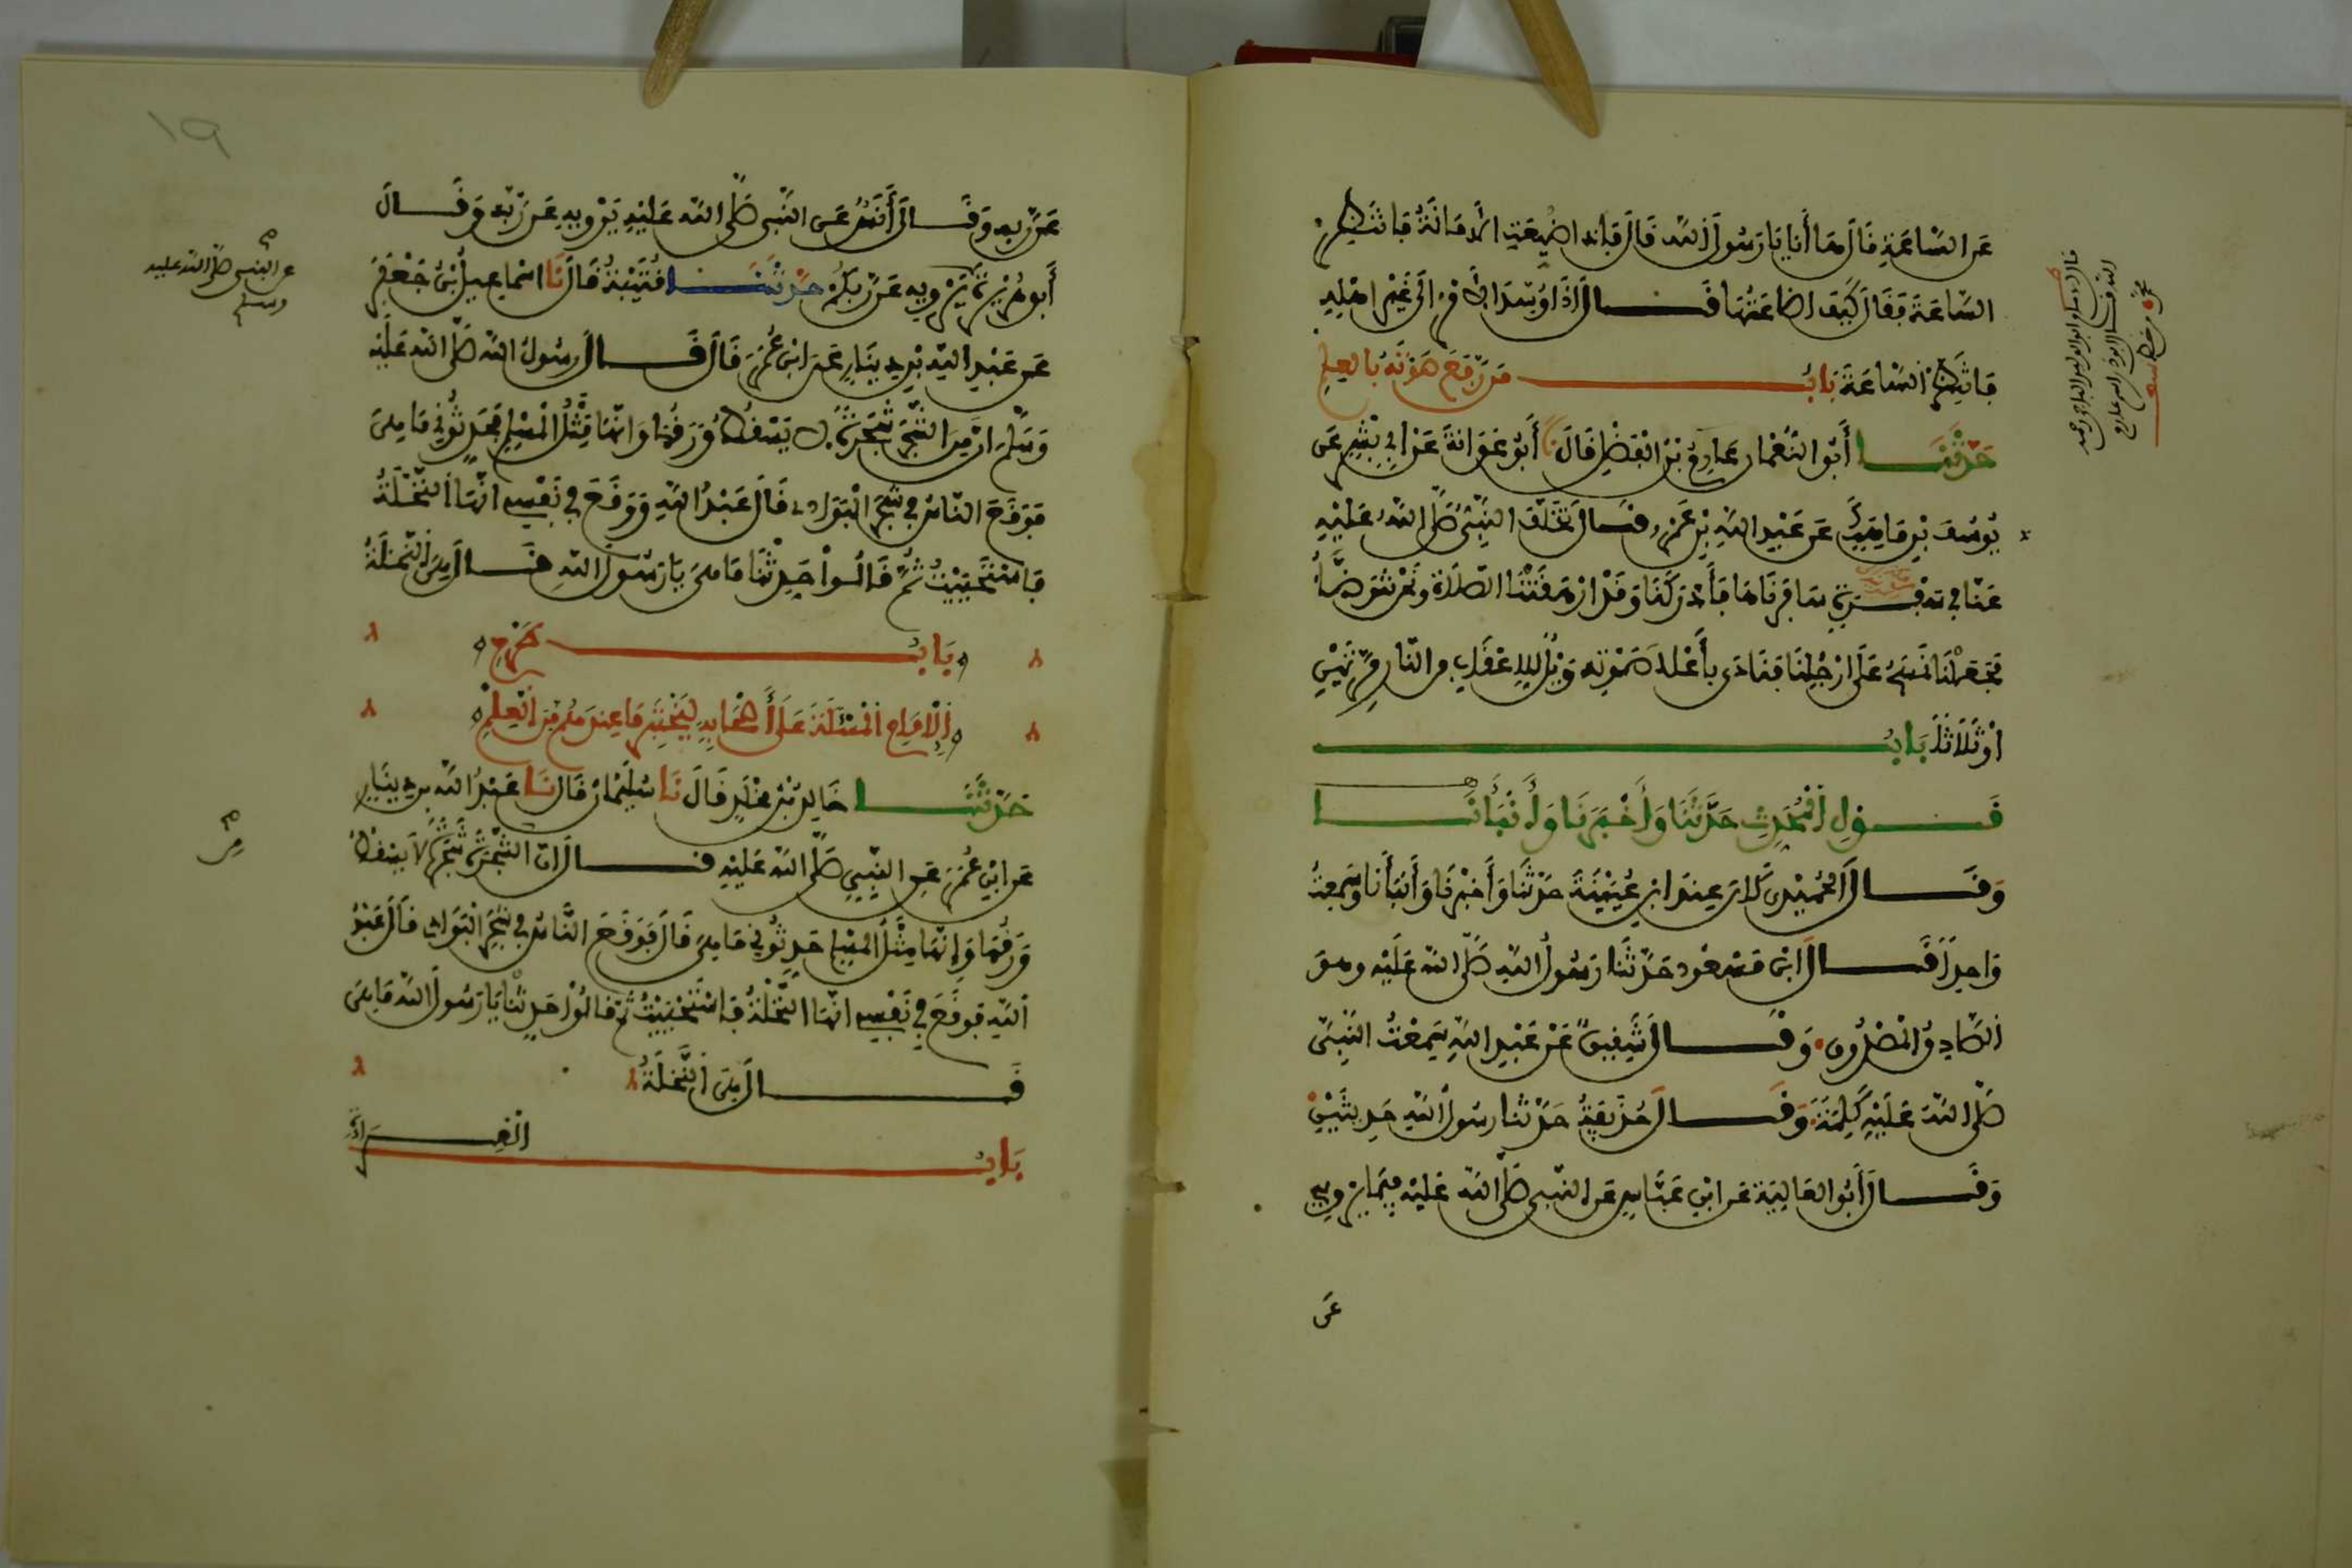 عن الساعة قال ها أنا يا رسول الله قال فإذا ضيعت الأمانة فانتظر
الساعة فقال كيف اضاعتها قال اذا وسد الامر إلى غير اهله
فانتظر الساعة باب من رفع صوته بالعلم
حدثنا أبو النعمان عارم بن الفضل قال نا أبو عوانة عن أبي بشر عن
يوسف بن ماهك عن عبد الله بن عمرو قال تخلف النبي صلى الله عليه
عنا في سفرة سافرناها فأدركنا وقد ارهقتنا الصلاة ونحن نتوضأ
فجعلنا نمسح على ارجلنا فنادى بأعلا صوته ويل للاعقاب من النار مرتين
او ثلاثا باب
قول المحدث حدثنا وأخبرنا وأنبأنا
وقال الحميدي كان عند ابن عيينة حدثنا وأخبرنا وأنبأنا وسمعت
واحدا قال ابن مسعود حدثنا رسول الله صلى الله عليه وهو
الصادق المصدوق وقال شقيق عن عبد الله سمعت النبي
صلى الله عليه كلمة وقال حذيفة حدثنا رسول الله حديثين
وقال أبو العالية عن ابن عباس عن النبي صلى الله عليه فيما يرويه
عن
١٩
عن ربه وقال أنس عن النبي صلى الله عليه يرويه عن ربه وقال
أبو هريرة يرويه عن ربكم حدثنا قتيبة قال نا اسماعيل بن جعفر
عن عبد الله بن دينار عن ابن عمر قال قال رسول الله صلى الله عليه
وسلم ان من الشجر شجرة لا يسقط ورقها وانها مثل المسلم فحدثوني ما هي
فوقع الناس في شجر البوادي قال عبد الله ووقع في نفسي انها النخلة
فاستحييت ثم قالوا حدثنا ما هي يا رسول الله قال هي النخلة
باب طرح
الامام المسئلة على أصحابه ليختبر ما عندهم من العلم
حدثنا خالد بن مخلد قال نا سليمان قال نا عبد الله بن دينار
عن ابن عمر عن النبي صلى الله عليه قال ان من الشجر شجرة لا يسقط
ورقها وإنها مثل المسلم حدثوني ما هي قال فوقع الناس في شجر البوادي قال عبد
الله فوقع في نفسي انها النخلة فاستحييت ثم قالوا حدثنا يا رسول الله ما هي
قال هي النخلة
باب القراءة
عن النبي صلى الله عليه
وسلم
من